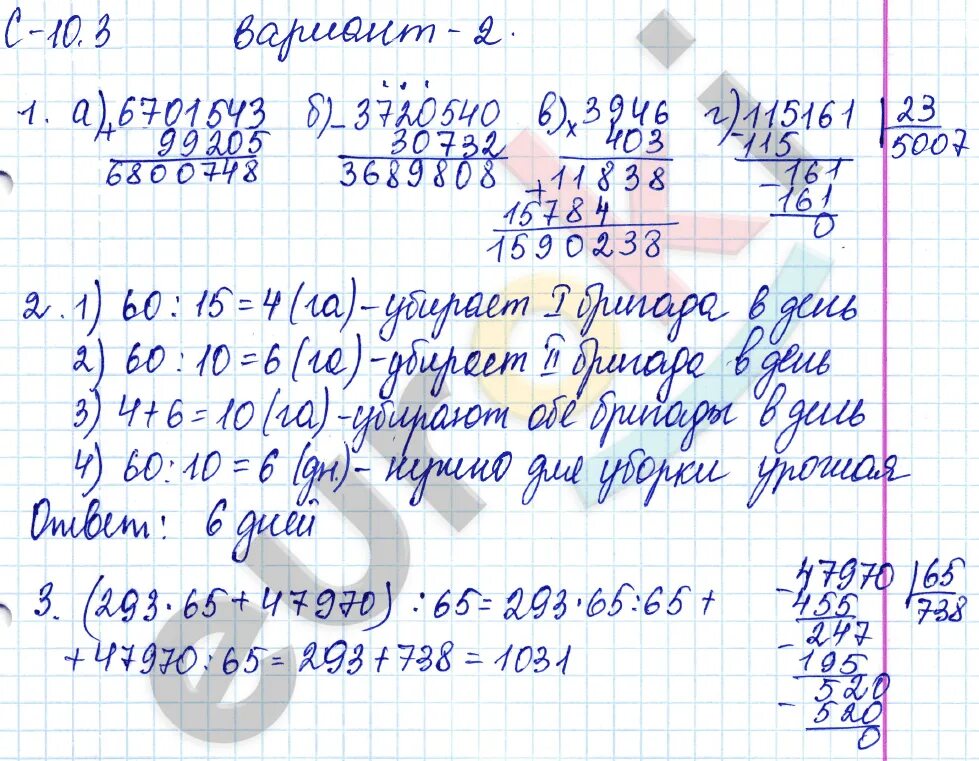 С-10.3 Вариант-2.
1. а) + 6701543 б) - 3720540 в) × 3946 г) - 115161 | 23
99205 30732 403 115 5007
6800748 3689808 + 11838 - 161
15784 161
1590238 0
2. 1) 60 : 15 = 4 (га) - убирает I бригада в день
2) 60 : 10 = 6 (га) - убирает II бригада в день
3) 4 + 6 = 10 (га) - убирают обе бригады в день
4) 60 : 10 = 6 (дн.) - нужно для уборки урожая
Ответ: 6 дней
3. (293 · 65 + 47970) : 65 = 293 · 65 : 65 +
+ 47970 : 65 = 293 + 738 = 1031
- 47970 | 65
455 738
- 247
195
- 520
520
0
euroki